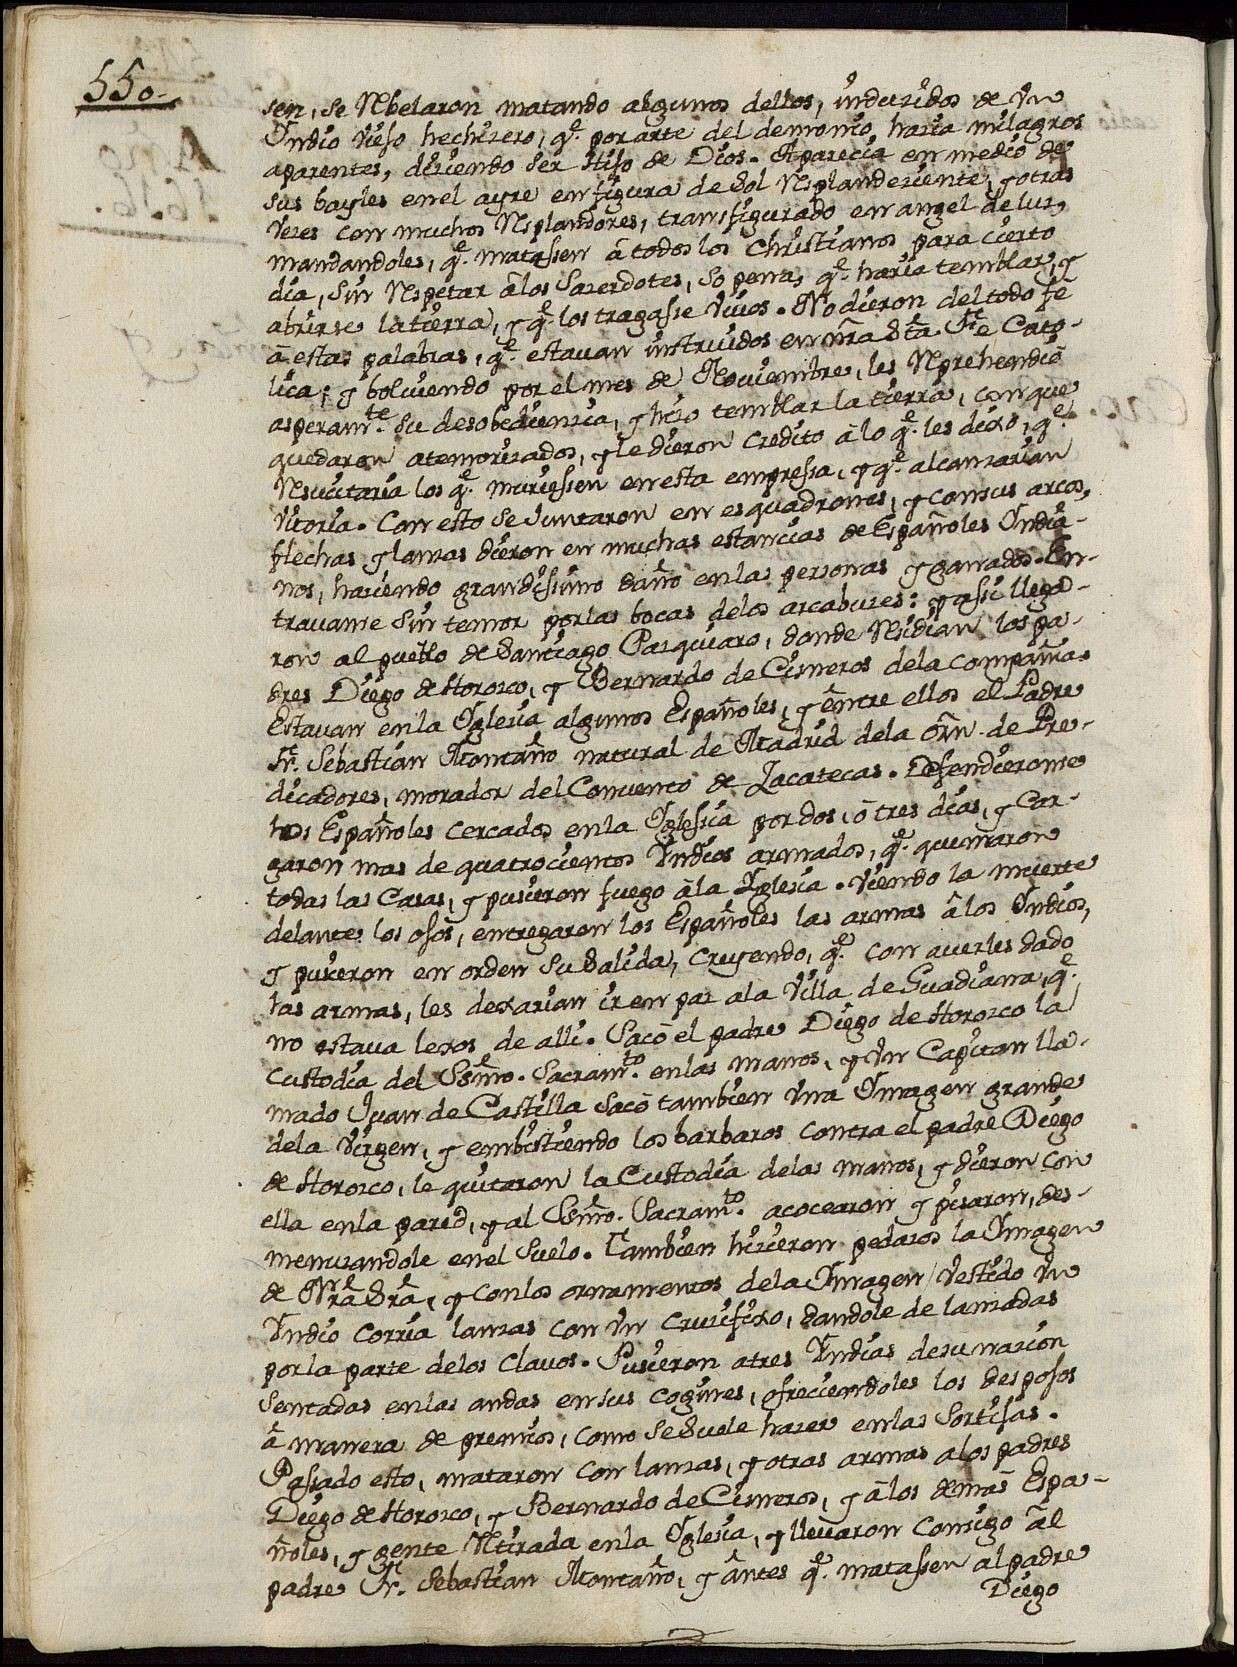 550.
sen, se Rbelaron matando algunos dellos, induzidos de Un
Yndio viejo hechizero, q.e por arte del demonio, hazia milagros
aparentes, diziendo ser Hijo de Dios. Aparecia en medio de
sus bayles en el ayre en figura de Sol Rsplandeziente, y otras
Vezes con muchos Rsplandores, transfigurado en angel de luz,
mandandoles, q.e matassen â todos los Christianos para cierto
dia, sin Rspetar âlos Sazerdotes, so pena, q.e haria temblar, y
abrirse latierra, y q.e los tragasse Vivos. No dieron deltodo fe
â estas palabras, q.e estavan instruidos en nra Sta. Fe Cato-
lica; y bolviendo por el mes de Noviembre, les Rprehendiô
asperam.te su desobediencia, y hizo temblar la tierra, con que
quedaron atemorizados, y le dieron credito â lo q.e les dixo, q.e
Rsucitaria los q.e muriessen en esta empressa, y q.e alcanzarian
Vitoria. Con esto se Juntaron en esquadrones, y con sus arcos,
flechas y lanzas dieron en muchas estancias de Españoles India-
nos, haziendo grandissimo daño en las personas y ganados. En-
travanse sin temor por las bocas delos arcabuzes: y assi llega-
ron al pueblo de Santiago Pazquaro, donde Rsidian los pa-
dres Diego de Horozco, y Bernardo de Cisneros dela compañia.
Estavan enla Yglesia algunos Españoles, y entre ellos el Padre
Fr. Sebastian Montaño natural de Madrid dela orñ. de Pre-
dicadores, morador del Convento de Zacatecas. Defendieronse
los Españoles cercados enla Yglesia por dos, ô tres dias, y Car-
garon mas de quatrocientos Yndios armados, q.e quemaron
todas las Casas, y pusieron fuego âla Yglesia. Viendo la muerte
delante los ojos, entregaron los Españoles las armas âlos Yndios,
y pusieron en orden su Salida, creyendo, q.e con averles dado
las armas, les dexarian ir en paz ala Villa de Guadiana, q.e
no estava lexos de alli. Sacô el padre Diego de Horozco la
custodia del Ssmo. Sacram.to en las manos, y Un Capitan lla-
mado Juan de Castilla sacô tambien Una Ymagen grande
dela Virgen, y embistiendo los barbaros contra el padre Diego
de Horozco, le quitaron la Custodia delas manos, y dieron con
ella enla pared, y al Ssmo. Sacram.to acocearon y pisaron, des-
menuzandole enel Suelo. Tambien hizieron pedazos la Ymagen
de Nra Sra, y conlos ornamentos dela Ymagen Vestido Un
Yndio corria lanzas con Un Cruzifixo, dandole de lanzadas
porla parte delos Clavos. Pusieron atres Yndias desu nazion
Sentadas enlas andas en sus cogines, ofreciendoles los despojos
â manera de premios, como se suele hazer enlas Sortijas.
Passado esto, mataron con lanzas, y otras armas alos padres
Diego de Horozco, y Bernardo de Cisneros, y âlos demas Espa-
ñoles, y gente Rtirada enla Yglesia, y llevaron consigo âl
padre Fr. Sebastian Montaño, y ântes q.e matassen al padre
Diego